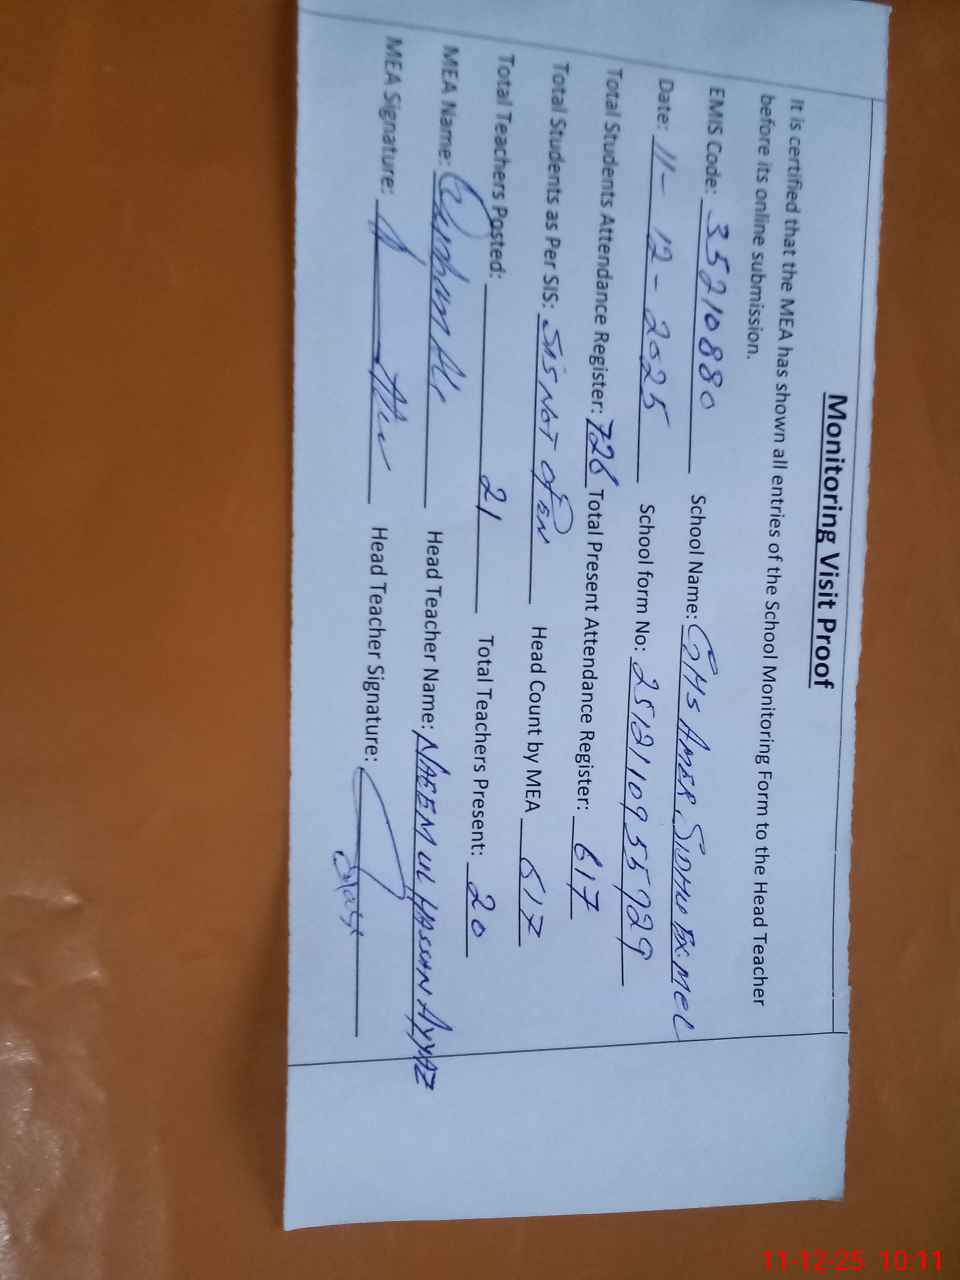 Monitoring Visit Proof
It is certified that the MEA has shown all entries of the School Monitoring Form to the Head Teacher
before its online submission.
EMIS Code: 35210880 School Name: GHS AMER SIDHU EX MCL
Date: 11-12-2025 School form No: 2512110955729
Total Students Attendance Register: 726 Total Present Attendance Register: 617
Total Students as Per SIS: SIS NOT OPEN Head Count by MEA 617
Total Teachers Posted: 21 Total Teachers Present: 20
MEA Name: Head Teacher Name: NAEEM UL HASSAN AYYAZ
MEA Signature: Head Teacher Signature:
11-12-25 10:11